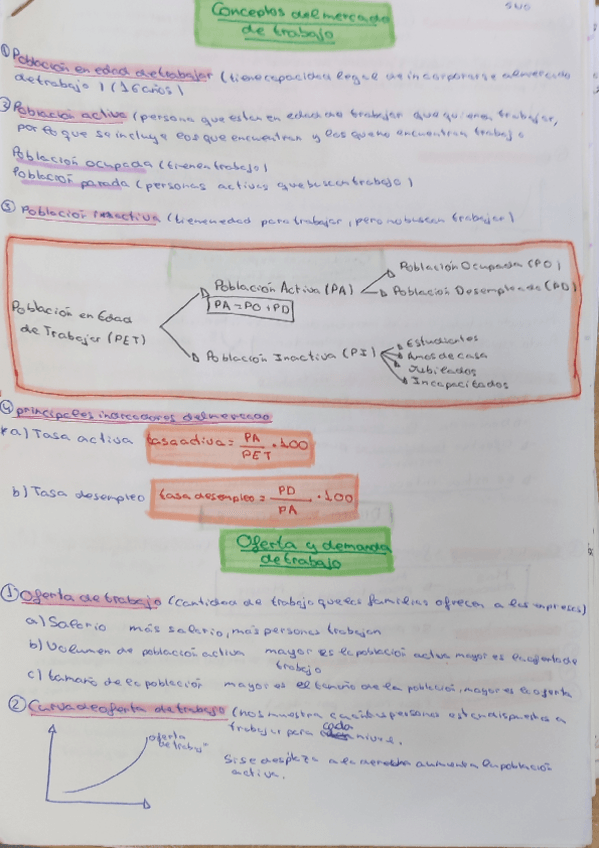 Conceptos del mercado
de trabajo
① Población en edad de trabajar (tiene capacidad legal de incorporarse al mercado
de trabajo) (16 años)
② Población activa (persona que estan en edad de trabajar que quieren trabajar,
por lo que se incluye los que encuentran y los que no encuentran trabajo
Población ocupada (tienen trabajo)
Población parada (personas activas que buscan trabajo)
③ Población inactiva (tienen edad para trabajar, pero no buscan trabajar)
Población en Edad
de Trabajar (PET)
Población Activa (PA)
PA = PO + PD
Población Ocupada (PO)
Población Desempleada (PD)
Población Inactiva (PI)
Estudiantes
Amos de casa
Jubilados
Incapacitados
④ principales indicadores del mercado
a) Tasa activa tasa activa = PA / PET · 100
b) Tasa desempleo tasa desempleo = PD / PA · 100
Oferta y demanda
de trabajo
① Oferta de trabajo (cantidad de trabajo que las familias ofrecen a las empresas)
a) Salario más salario, más personas trabajan
b) Volumen de población activa mayor es la población activa mayor es la oferta de
trabajo
c) tamaño de la población mayor es el tamaño de la población, mayor es la oferta
② Curva de oferta de trabajo (nos muestra cuantas personas estan dispuestas a
trabajar para cada nivel.
oferta
de trabajo
Si se desplaza a la derecha aumenta la población
activa.